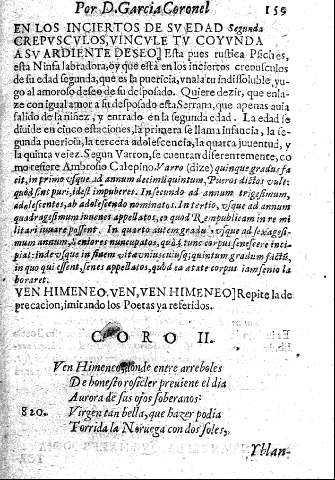 Por D. Garcia Coronel 159
EN LOS INCIERTOS DE SV EDAD Segunda
CREPVSCVLOS, VINCVLE TV COYVNDA
A SV ARDIENTE DESEO] Esta pues rustica Psiches,
esta Ninfa labradora, oy que està en los inciertos crepusculos
de su edad segunda, que es la puericia, vnala tu indissoluble, yu-
go al amoroso deseo de su desposado. Quiere dezir, que enla-
ze con igual amor a su desposado esta Serrana, que apenas auia
salido de la niñez, y entrado en la segunda edad. La edad se
diuide en cinco estaciones, la primera se llama infancia, la se-
gunda puericia, la tercera adolescencia, la quarta juuentud, y
la quinta vejez. Segun Varron, se cuentan diferentemente, co-
mo refiere Ambrosio Calepino. Varro (dize) quinque gradus fa-
cit, in primo vsque ad annum decimũ quintum, Pueros dictos vult:
quòd sint puri, idest impuberes. In secundo ad annum trigesimum,
adolescentes, ab adolescendo nominatos. In tertio, vsque ad annum
quadragesimum iuuenes appellatos, eo quod Rempublicam in re mi
litari iuuare possent. In quarto autem gradu, vsque ad sexagesi-
mum annum, Seniores nuncupatos, quòd tunc corpus senescere inci-
piat: inde vsque in finem vitæ vniuscuiusq; quintum gradum factũ,
in quo qui essent, senes appellatos, quòd ea ætate corpus iam senio la
boraret.
VEN HIMENEO, VEN, VEN HIMENEO] Repite la de-
precacion, imitando los Poetas ya referidos.
CORO II.
Ven Himeneo, donde entre arreboles
De honesto rosicler preuiene el dia
Aurora de sus ojos soberanos:
820. Virgen tan bella, que hazer podia
Torrida la Noruega con dos soles,
Yblan-